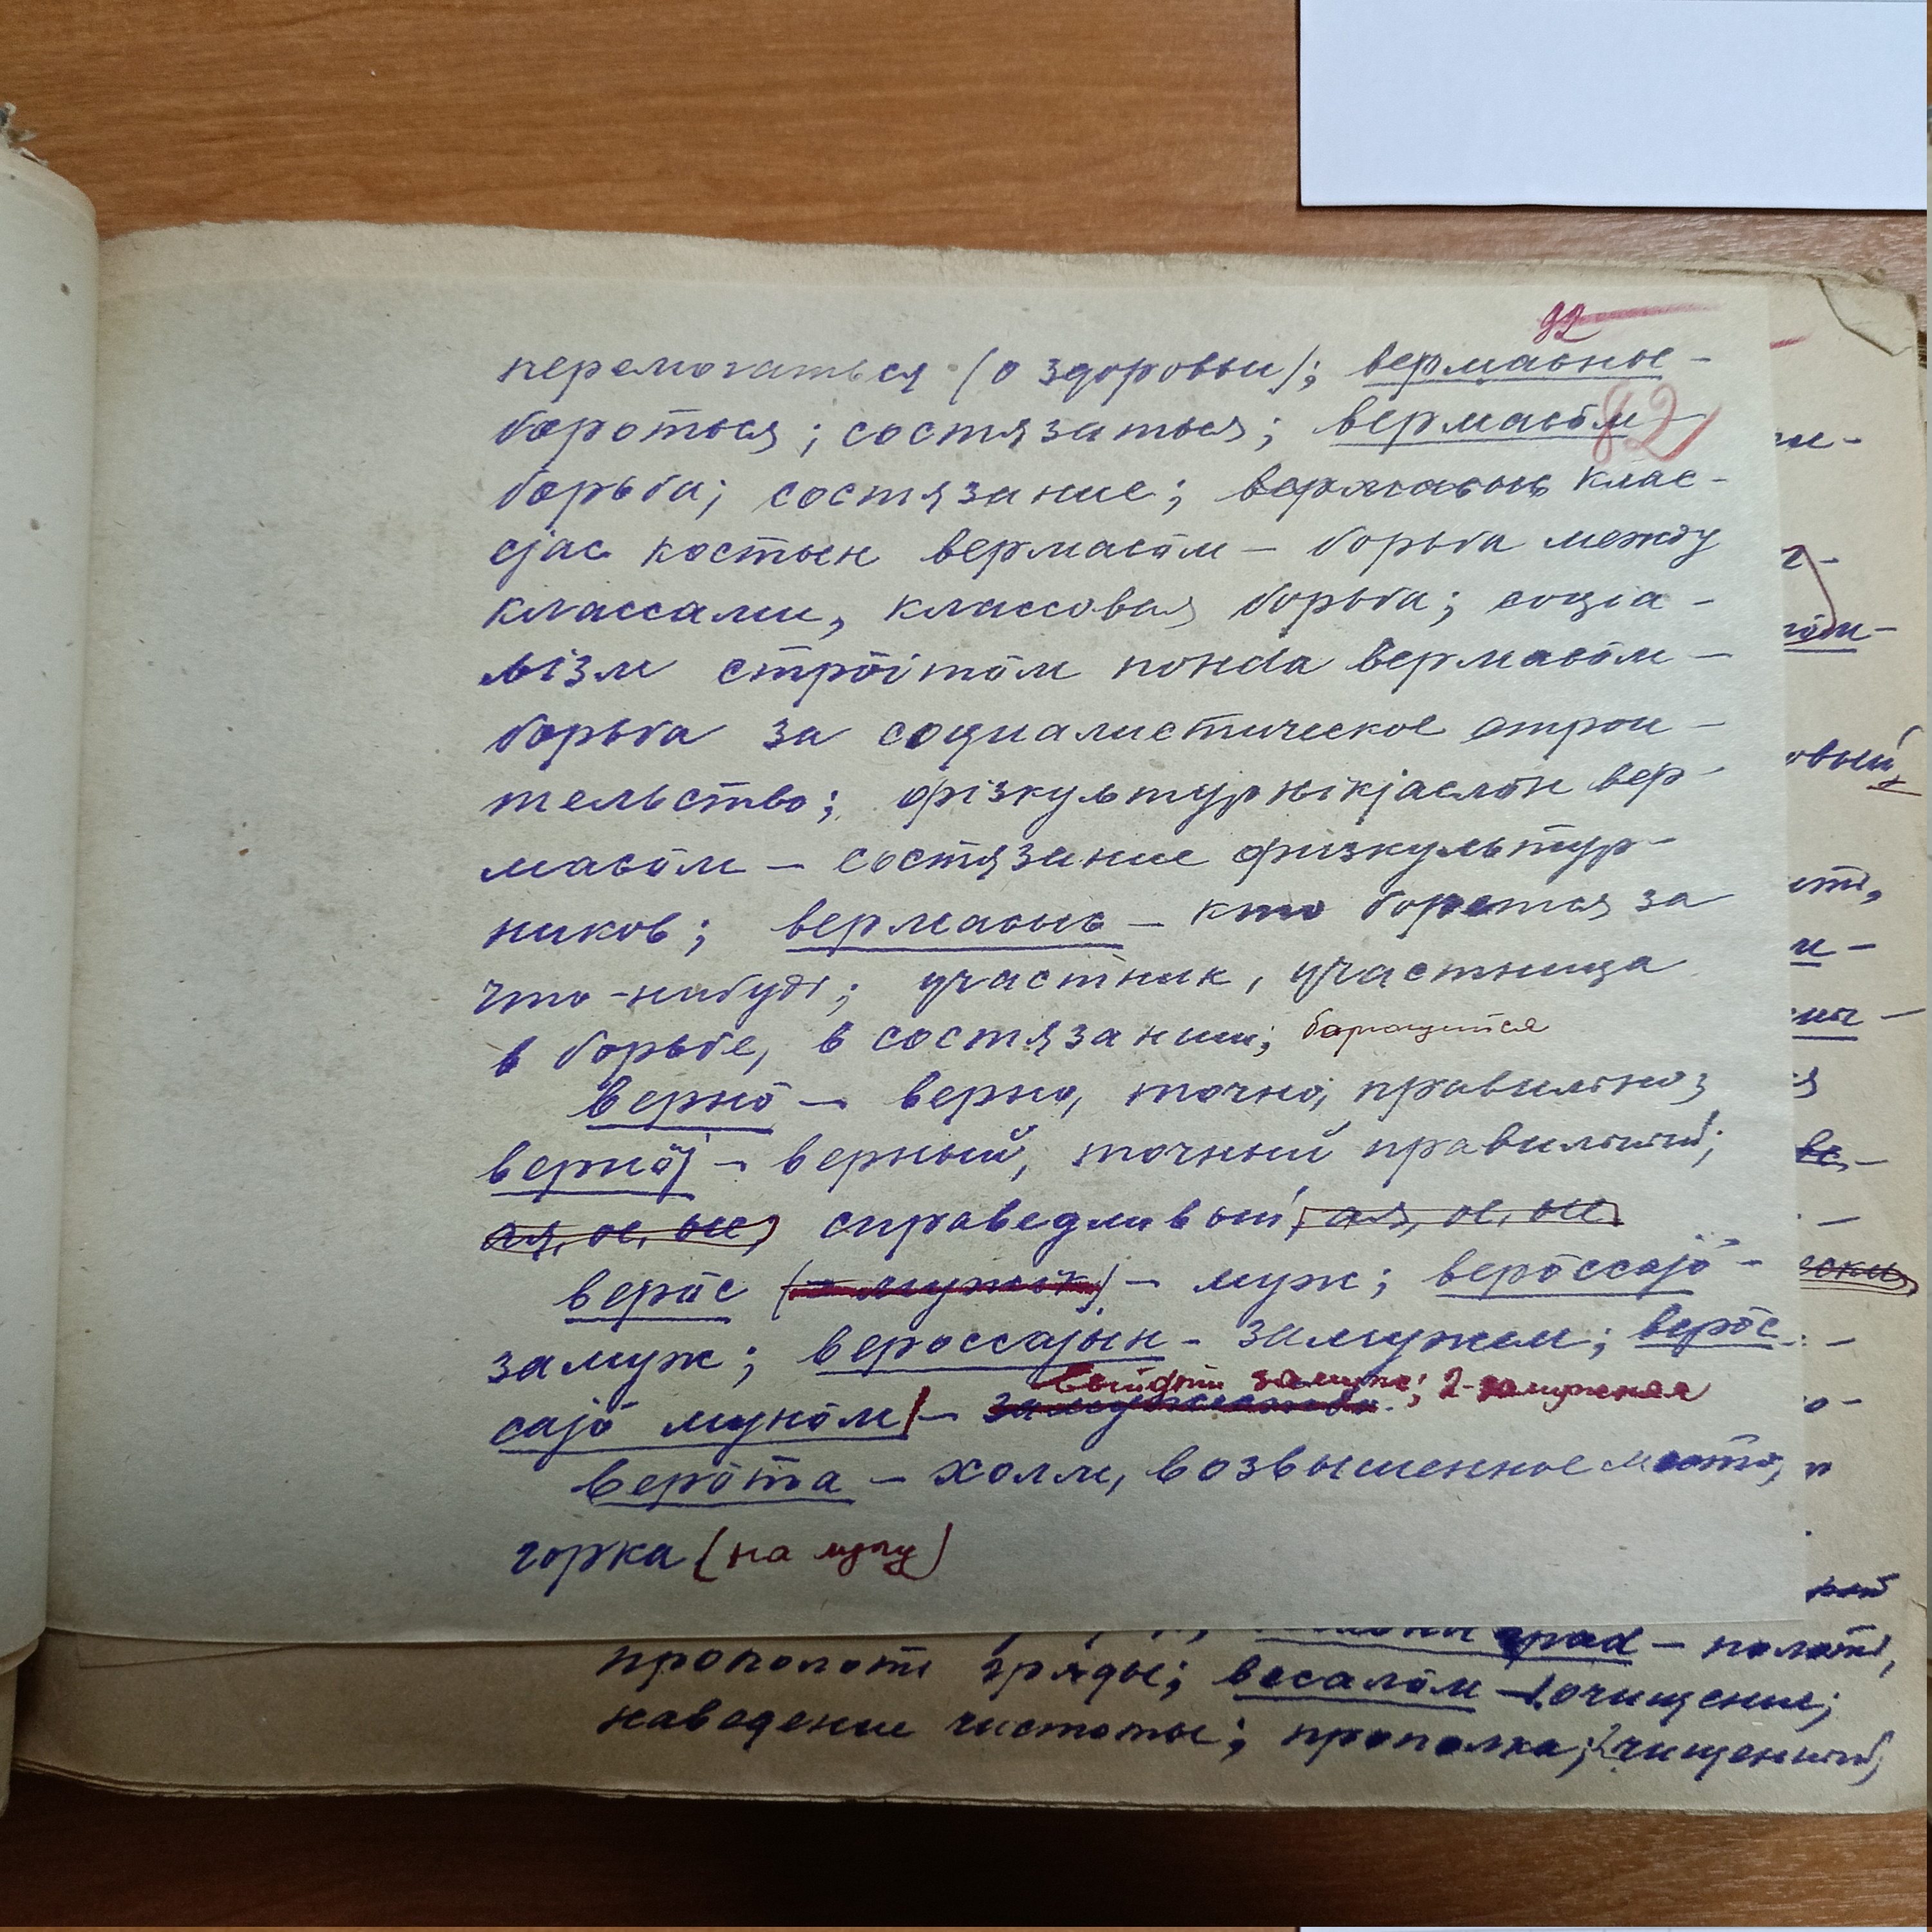 92
перемогаться (о здоровьи); вермасьны –
82
бороться; состязаться; вермасӧм –
борьба; состязание; клас-
сјас костын вермасӧм – борьба между
классами, классовая борьба; соціа-
лізм стрӧітӧм понda вермасӧм –
борьба за социалистическое строи-
тельство; фізкультурнікјаслӧн вер-
масӧм – состязание физкультур-
ников; вермасысь – кто борется за
что-нибудь; участник, участница
в борьбе, в состязании; борющийся
вернӧ – верно, точно, правильно;
вернӧј – верный, точный правильный;
ая, ое, ые, справедливый, ая, ое, ые
верӧс (– мужик) – муж; верӧссајӧ –
замуж; верӧссајын – замужем; верӧс
выйдти замуж; 2-замужняя
сајӧ мунӧм –
верӧта – холм, возвышенное место,
горка (на лугу)
град – полоть,
прополоть гряды; весалӧм – очищение;
наведение чистоты; прополка; чищенный;